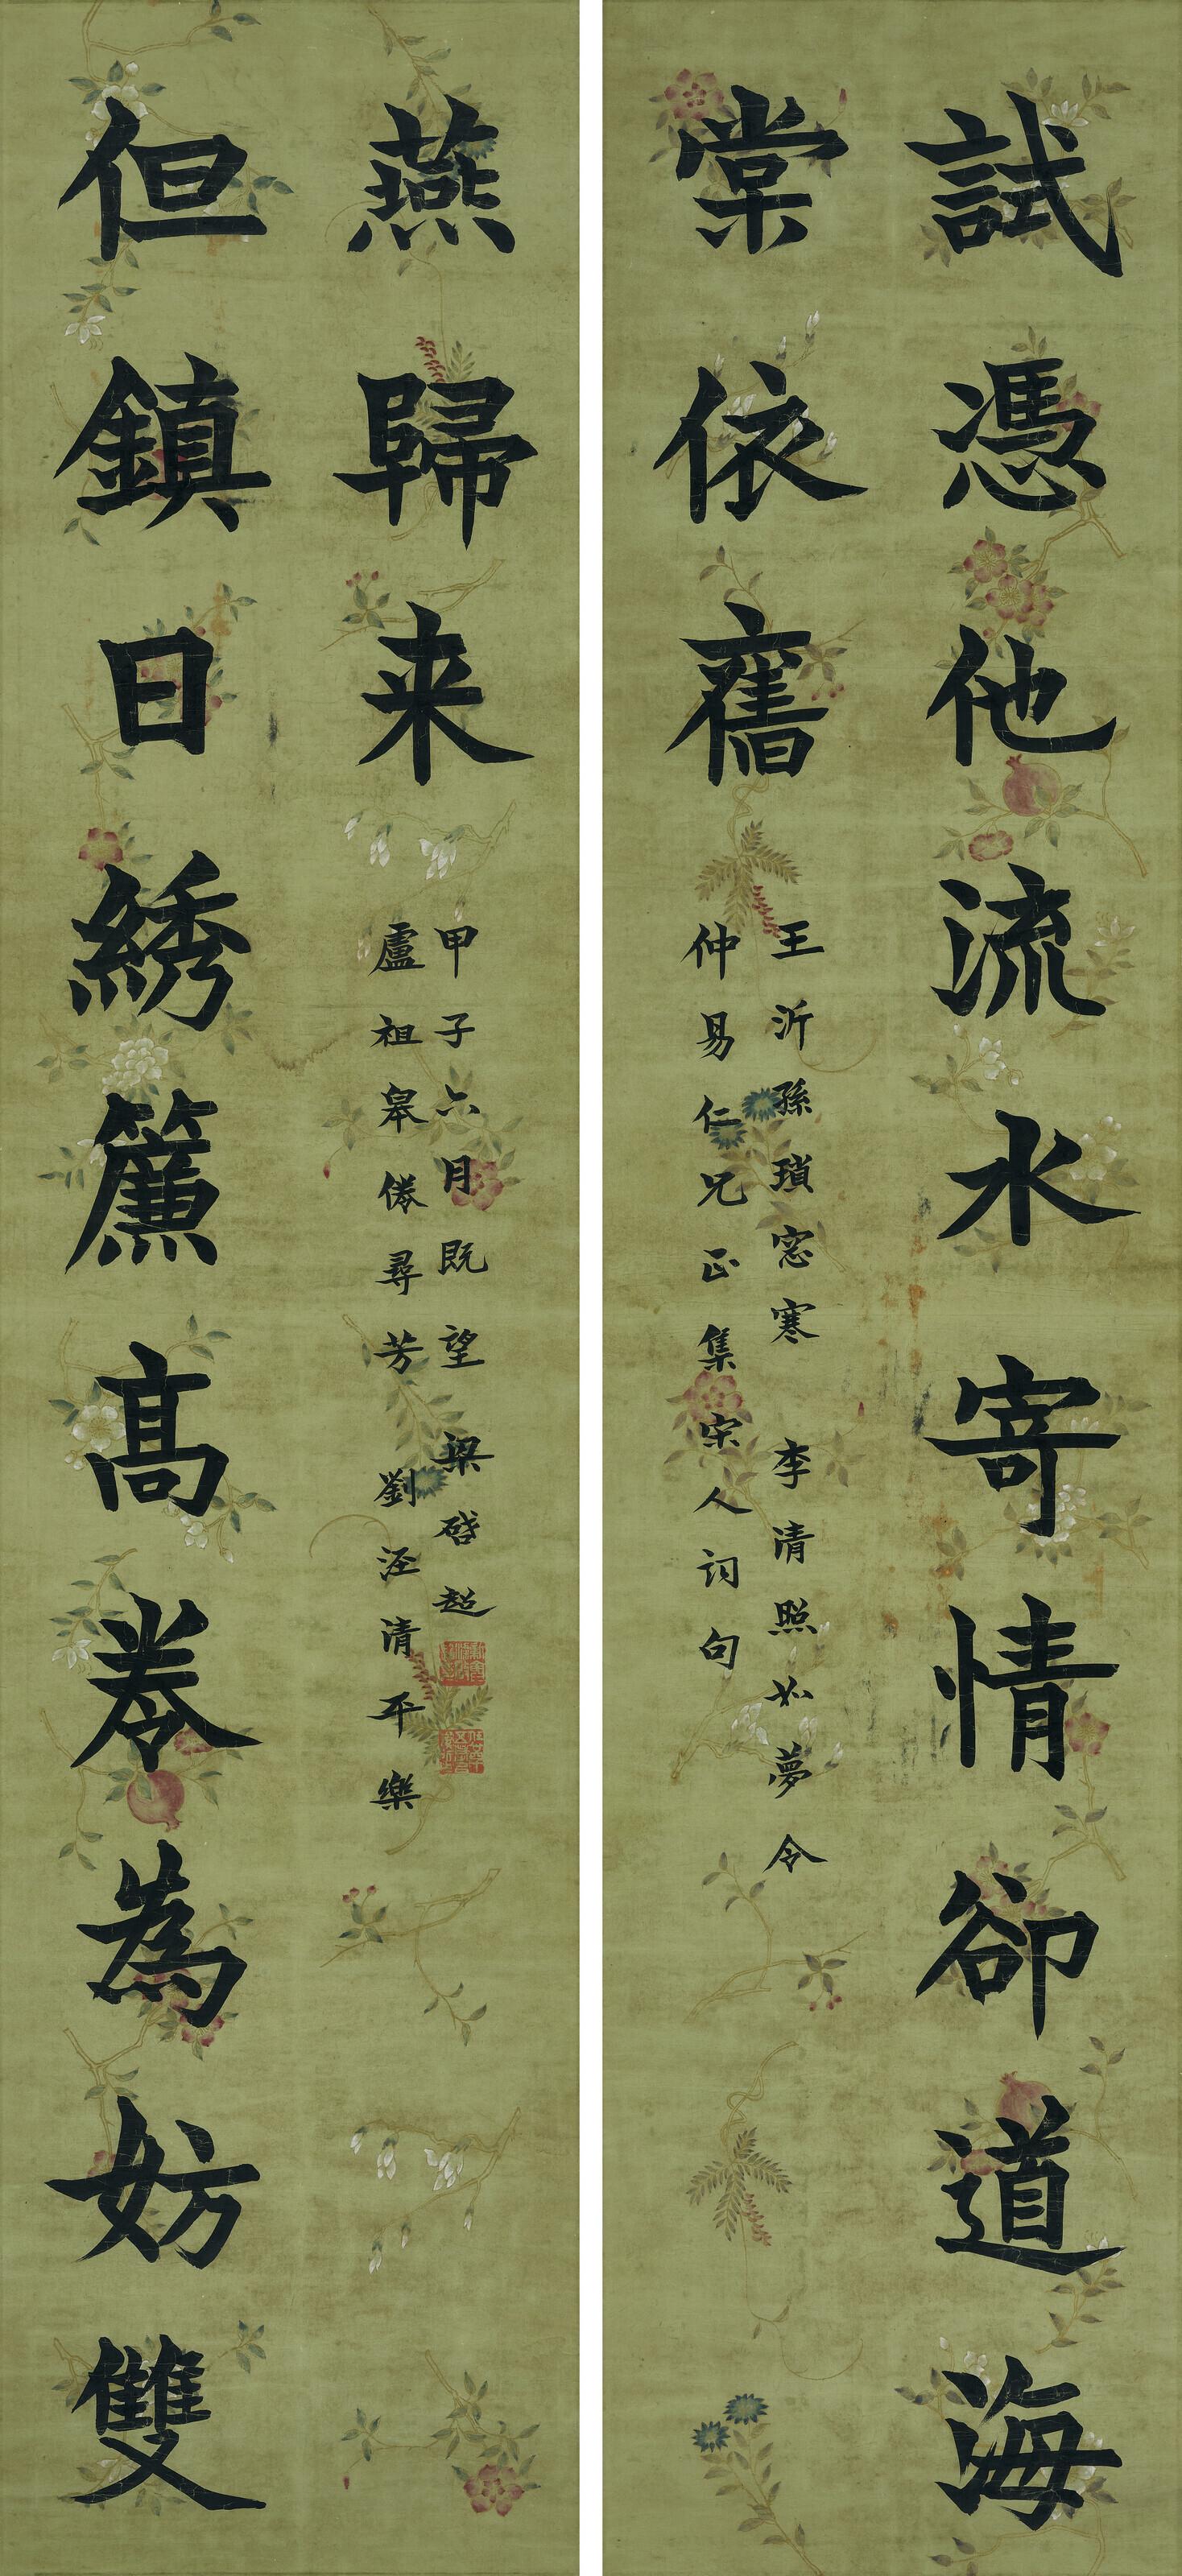 試憑他流水寄情卻道海
棠依舊
王沂孫瑣窓寒 李清照如夢令
仲易仁兄正集宋人詞句
但鎮日綉簾髙卷為妨雙
燕歸来
盧祖皋倦尋芳 劉涇清平樂
甲子六月既望 梁啓超